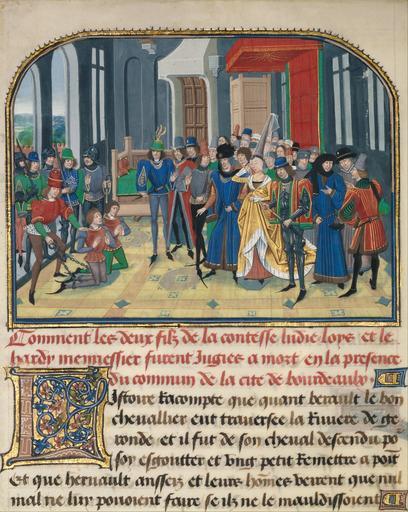 Comment les deux filz de la contesse ludie loys et le
hardy mennessier furent Jugies a mort en la presence
du commun de la cite de bourdeaulx
Istoire Racompte que quant berault le bon
chevallier eut traversee la Riviere de ge
ronde et il fut de son cheval descendu po
soy esgoutter et ung petit Remettre a point
Et que hernault ansseiz et leurs hommes veirent que nul
mal ne luy pouoient faire se ilz ne le mauldissoient